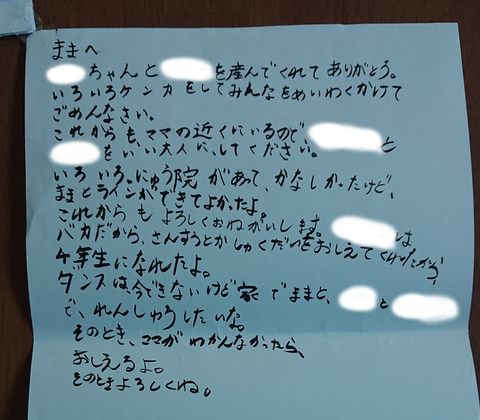 ままへ
ちゃんと を産んでくれてありがとう。
いろいろケンカをしてみんなをめいわくかけて
ごめんなさい。
これからも、ママの近くにいるので と
をいい大人に、してください。
いろいろ。にゅう院があって、かなしかったけど、
ままとラインができてよかったよ。
これからもよろしくおねがいします。 は
バカだから、さんすうとかしゅくだいをおしえてくれたから、
4年生になれたよ。
ダンスは今できないけど家でままと、 と
で、れんしゅうしたいな。
そのとき、ママがわかんなかったら、
おしえるよ。
そのときよろしくね。